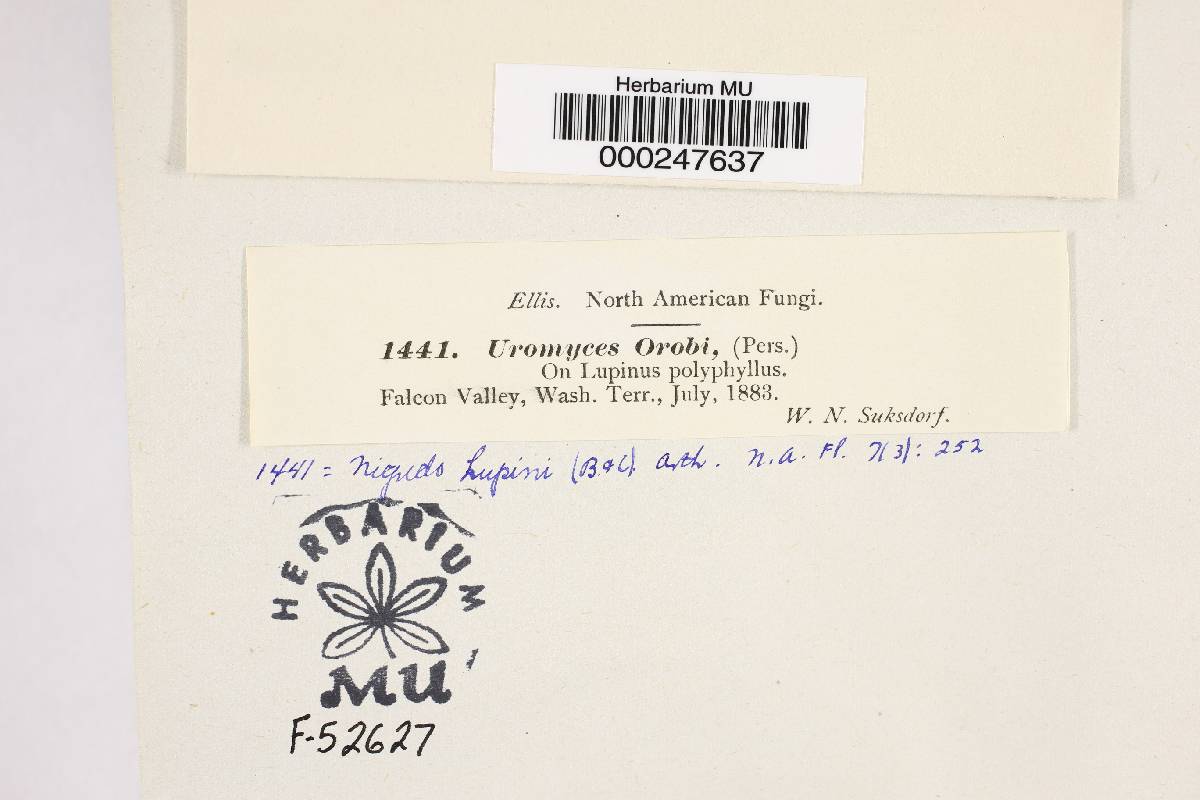 Herbarium MU
000247637
Ellis. North American Fungi.
1441. Uromyces Orobi, (Pers.)
On Lupinus polyphyllus.
Falcon Valley, Wash. Terr., July, 1883.
W. N. Suksdorf.
1441 = Nigredo Lupini (B&C). Arth. N.A. Fl. 7(3): 252
HERBARIUM
MU
F-52627